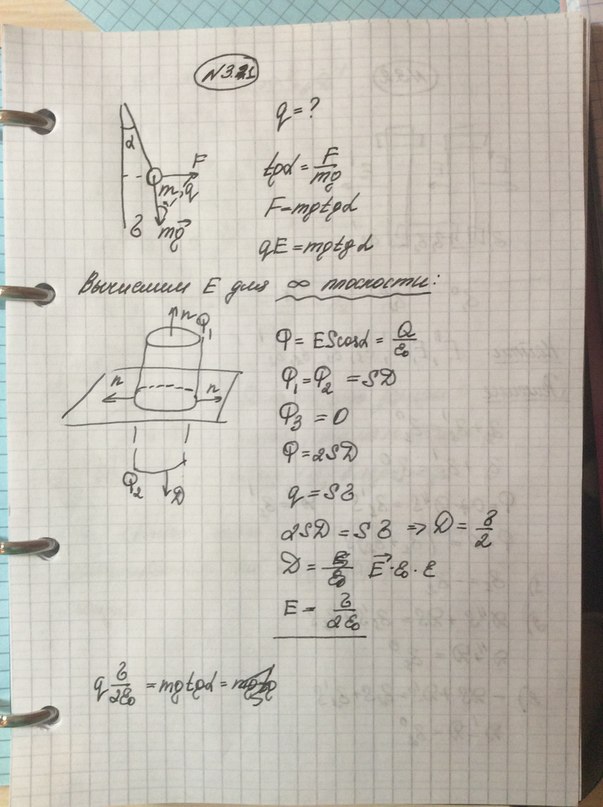 N3.21
q = ?
α
F
m, q
mg⃗
σ
tgα = F/mg
F = mgtgα
qE = mgtgα
Вычислим E для ∞ плоскости:
n
Φ₁
n
n
Φ₂
D
Φ = EScosα = Q/ε₀
Φ₁ = Φ₂ = SD
Φ₃ = 0
Φ = 2SD
q = Sσ
2SD = Sσ => D = σ/2
D = E⃗·ε₀·ε
E = σ/2ε₀
q σ/2ε₀ = mgtgα =